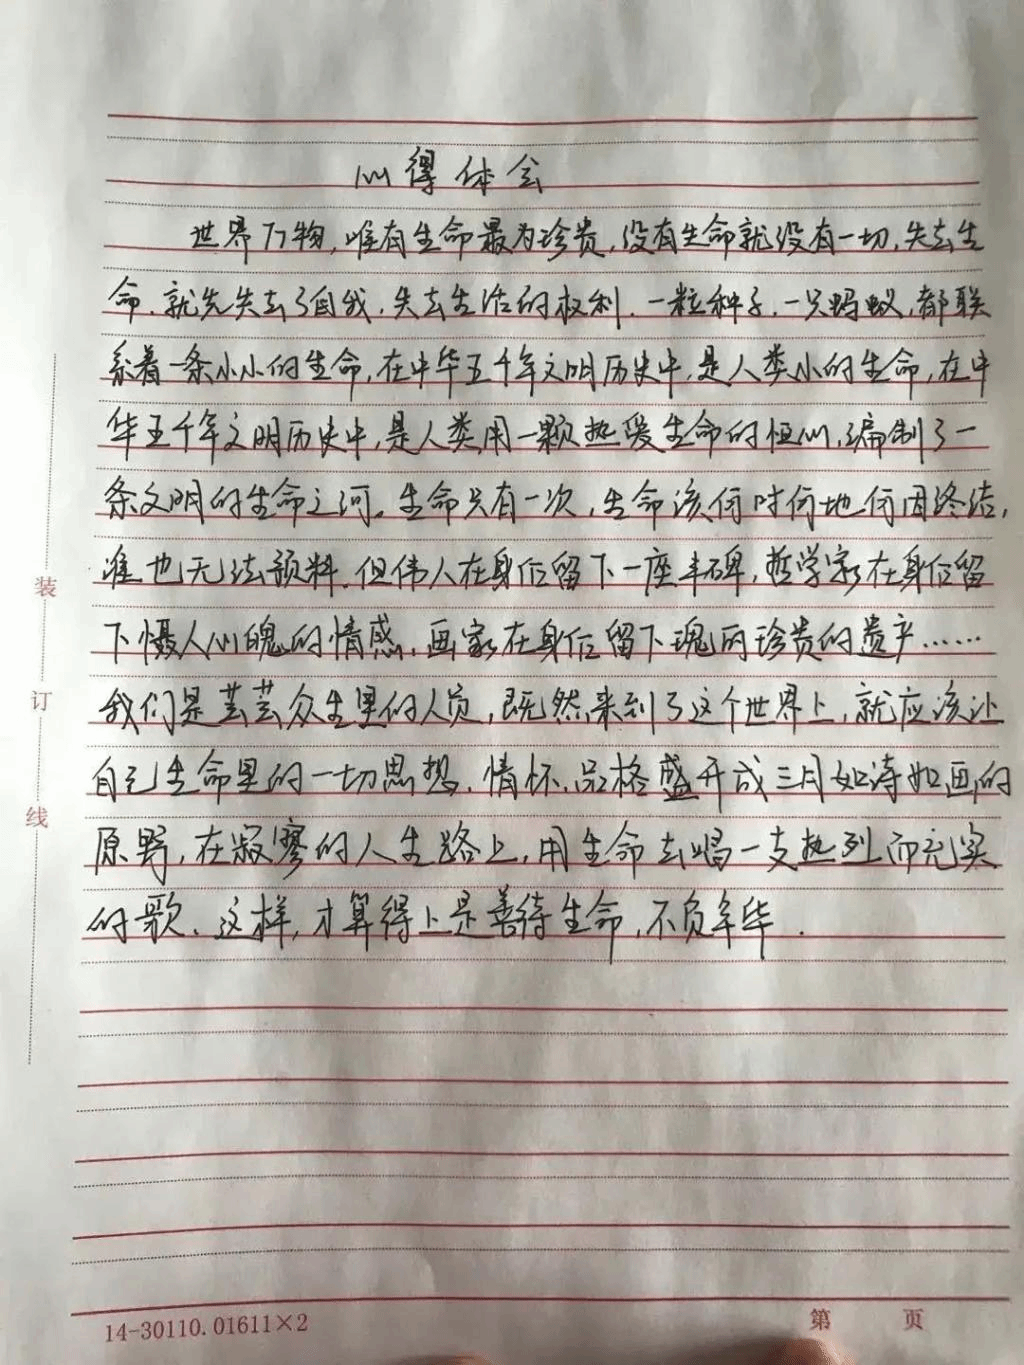 心得体会
世界万物，唯有生命最为珍贵，没有生命就没有一切，失去生
命，就先失去了自我，失去生活的权利．一粒种子，一只蚂蚁，都联
系着一条小小的生命，在中华五千年文明历史中，是人类小的生命，在中
华五千年文明历史中，是人类用一颗热爱生命的恒心，编制了一
条文明的生命之河。生命只有一次，生命该何时何地何因终结，
谁也无法预料．但伟人在身后留下一座丰碑，哲学家在身后留
下慑人心魄的情感，画家在身后留下瑰丽珍贵的遗产……
我们是芸芸众生里的人员，既然来到了这个世界上，就应该让
自己生命里的一切思想、情怀、品格盛开成三月如诗如画的
原野，在寂寥的人生路上，用生命去唱一支热烈而充实
的歌、这样，才算得上是善待生命，不负年华．
装
订
线
14-30110.01611×2
第 页